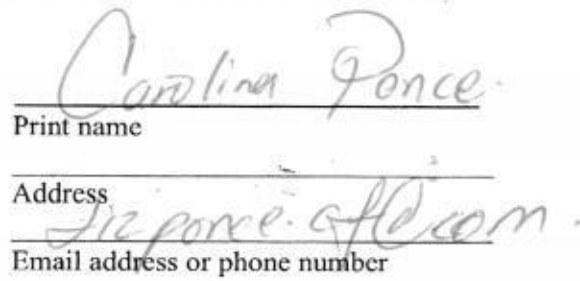 Carolina Ponce.
Print name
Address
lizponce.cf@com.
Email address or phone number